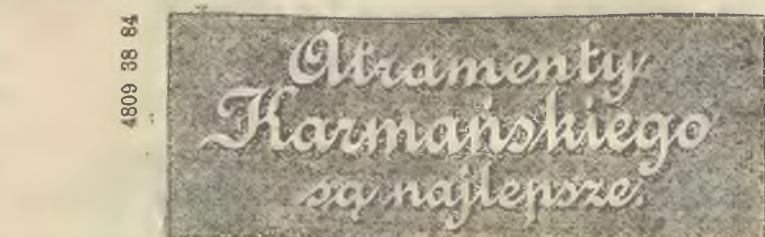 4809 38 84
Atramenty
Karmańskiego
są najlepsze.